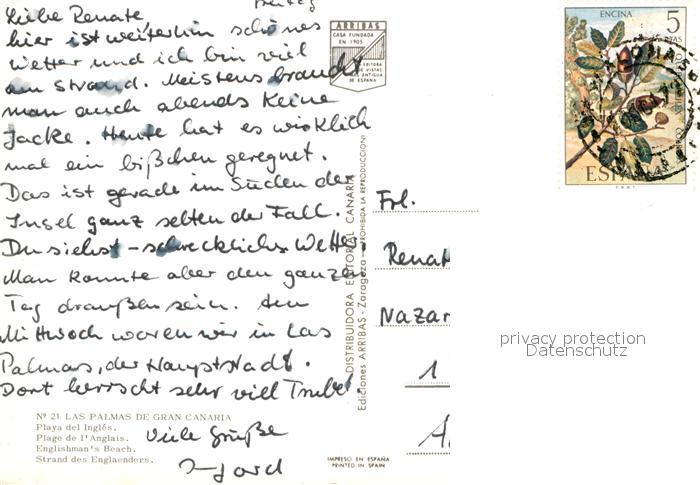 Freitag
Liebe Renate,
hier ist weiterhin schönes
Wetter und ich bin viel
am Strand. Meistens braucht
man auch abends keine
Jacke. Heute hat es wirklich
mal ein bißchen geregnet.
Das ist gerade im Süden der
Insel ganz selten der Fall.
Du siehst – schreckliches Wetter.
Man konnte aber den ganzen
Tag draußen sein. Am
Mittwoch waren wir in Las
Palmas, der Hauptstadt.
Dort herrscht sehr viel Trubel.
Viele Grüße
Nº 21 LAS PALMAS DE GRAN CANARIA
Playa del Inglés.
Plage de l'Anglais.
Englishman's Beach.
Strand des Englaenders.
ARRIBAS
CASA FUNDADA
EN 1905
EDITORA
DE VISTAS
MAS ANTIGUA
DE ESPAÑA
DISTRIBUIDORA EDITORIAL CANARIA
Ediciones ARRIBAS - Zaragoza - PROHIBIDA LA REPRODUCCION
IMPRESO EN ESPAÑA
PRINTED IN SPAIN
Frl.
Renat
Nazar
1
A
ENCINA
5
PTAS
CORREO
ESPAÑA
F.N.M.T.
privacy protection
Datenschutz